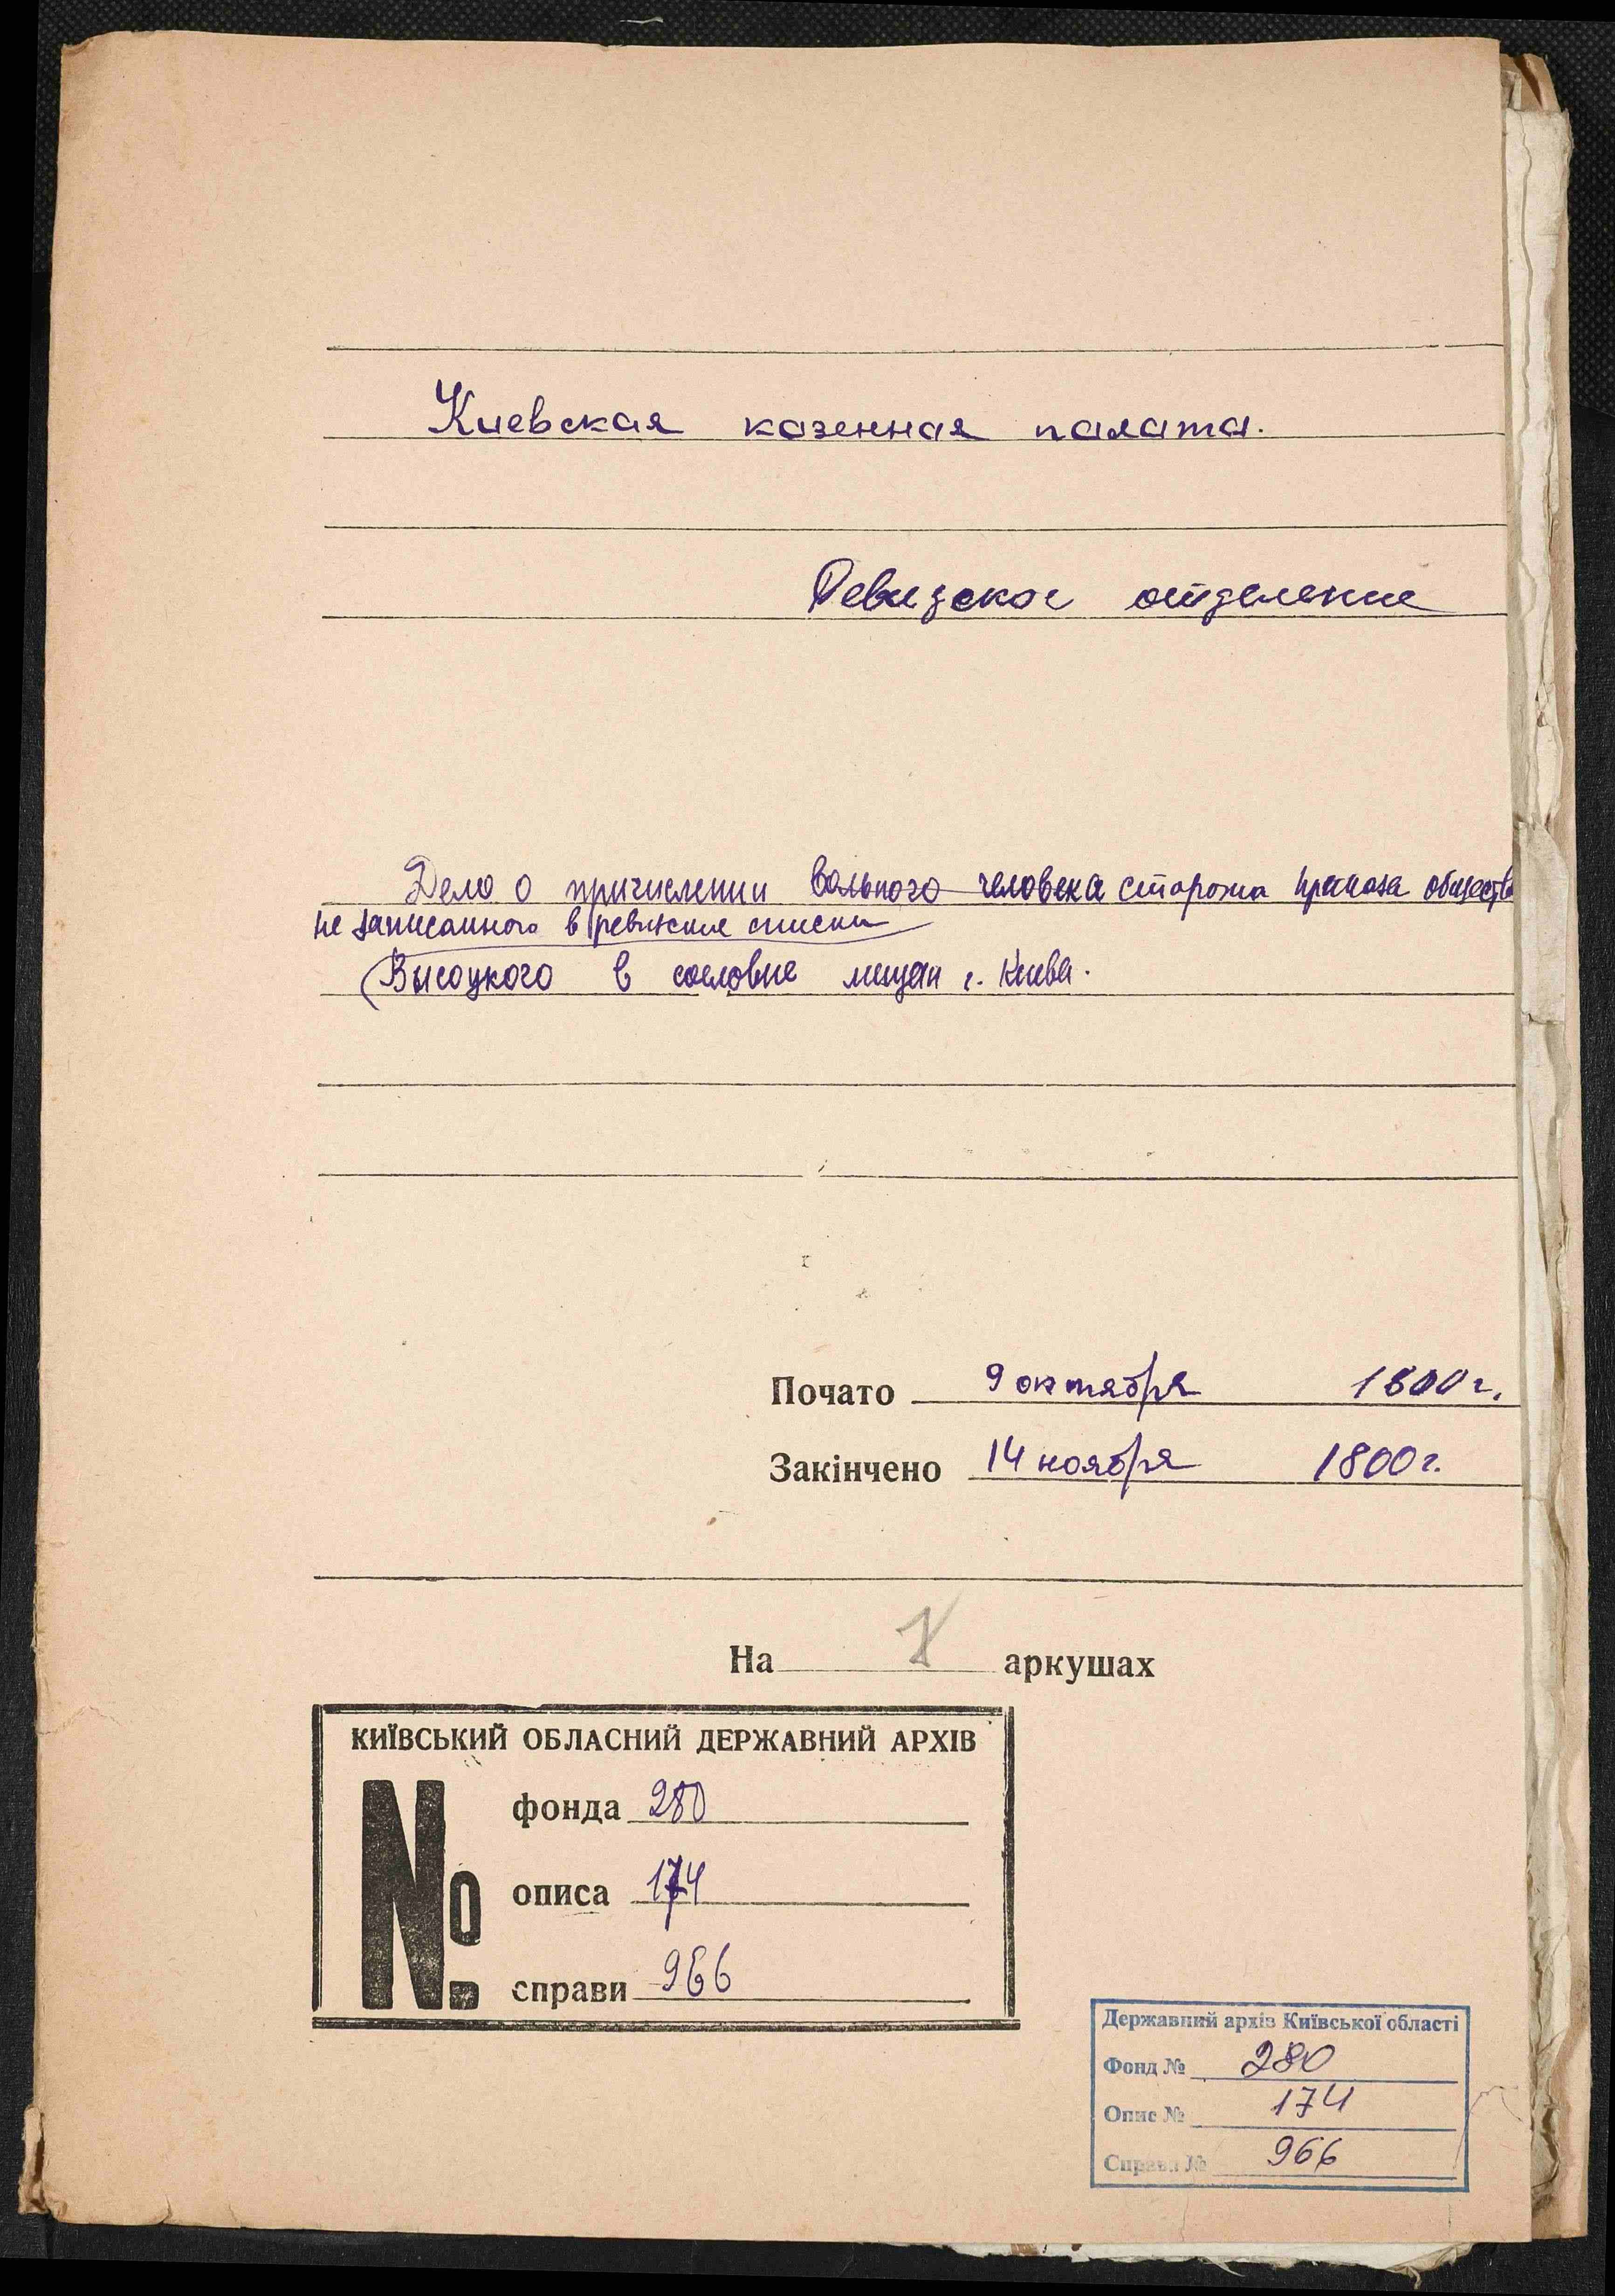 Киевская казенная палата.
Ревизское отделение
Дело о причислении вольного человека сторожа приказа обществ
не записанного в ревизские списки
Высоцкого в сословие мещан г. Киева.
Почато 9 октября 1800 г.
Закінчено 14 ноября 1800 г.
На аркушах
КИЇВСЬКИЙ ОБЛАСНИЙ ДЕРЖАВНИЙ АРХІВ
№ фонда 280
описа 174
справи 966
Державний архів Київської області
Фонд № 280
Опис № 174
Справа № 966